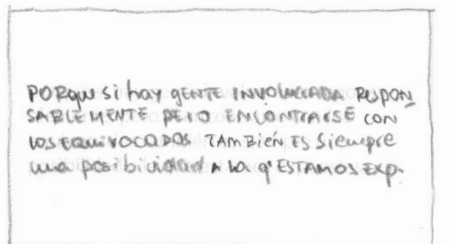 PORque si hay gENTE INVOLUCRADA RESPON
SABLEMENTE PERO ENCONTRARSE CON
LOS EQUIVOCADOS TAMBIÉN ES Siempre
una posibilidad A la q' ESTAMOS EXP.